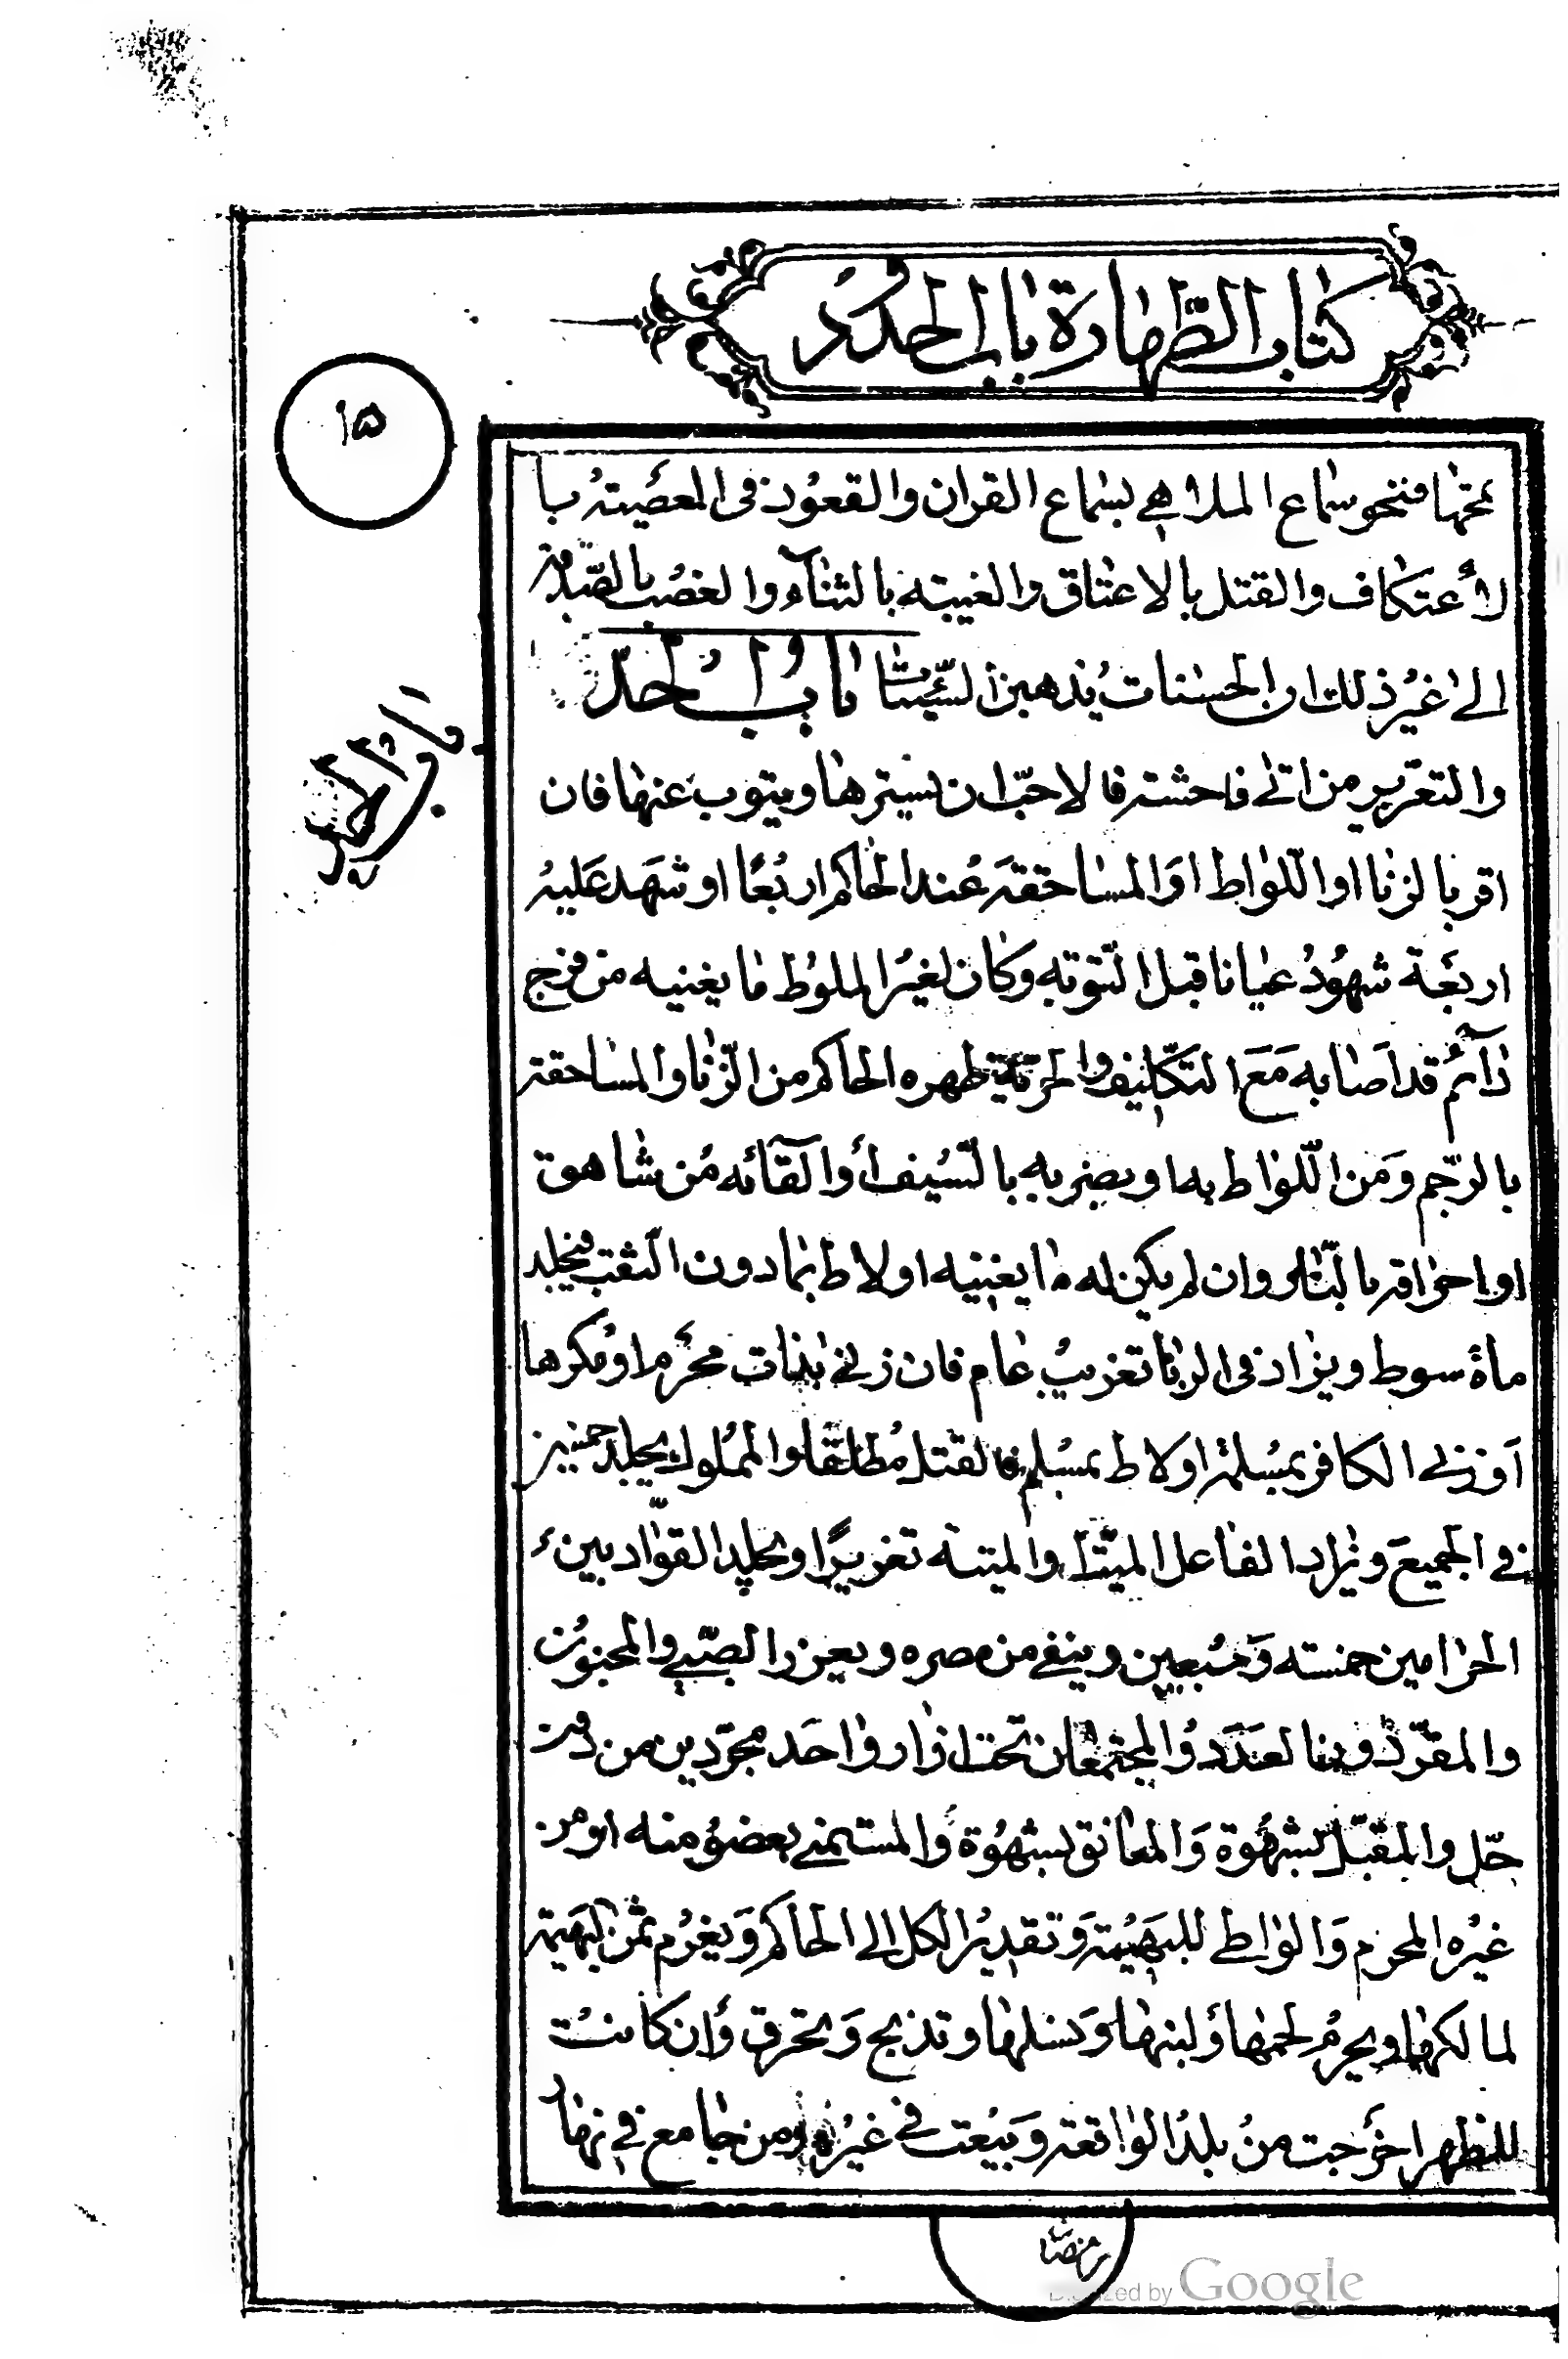 كتاب الطهارة باب الحدود
١٥
تمحها فنحو سماع الملاهي بسماع القران والقعود في المعصيته با
لأعتكاف والقتل بالاعتاق والغيبته بالثناء والغصب بالصدقة
الى غير ذلك ان الحسنات يذهبن السيئات باب الحد
باب الحد
والتعزير من اتى فاحشته فالاحب ان يسترها ويتوب عنها فان
اقر بالزنا او اللواط او المساحقته عند الحاكم اربعا او شهد عليه
اربعة شهود عيانا قبل التوبه وكان لغير الملوط ما يغنيه من فرج
دائم قد اصابه مع التكليف والحرية طهره الحاكم من الزنا والمساحقته
بالرجم ومن اللواط به او بضربه بالسيف أو القائه من شاهق
او احراقه بالنار وان لم يكن له ما يغنيه او لاط بما دون الثقب فيجلد
ماة سوط ويزاد في الزنا تغريب عام فان زنى بذات محرم او مكرها
او زنى الكافر بمسلمة او لاط بمسلم فالقتل مطلقا والمملوك يجلد خمسين
في الجميع ويزاد الفاعل الميت والميتة تعزيرا ويجلد القواد بين
الحرامين خمسته وسبعين وينفى من مصره ويعزر الصبي والمجنون
والمقر دون العدد والمجتمعان تحت ازار واحد مجردين من دون
حل والمقبل بشهوة والمعانق بشهوة والمستمنى بعضو منه او من
غيره المحرم والواطى للبهيمته وتقدير الكل الى الحاكم ويغرم ثمن البهيمته
لمالكها ويحرم لحمها ولبنها ونسلها وتذبح وتحرق وان كانت
للظهر اخرجت من بلد الواقعته وبيعت في غيره ومن جامع في نهار
رمضان
Digitized by Google